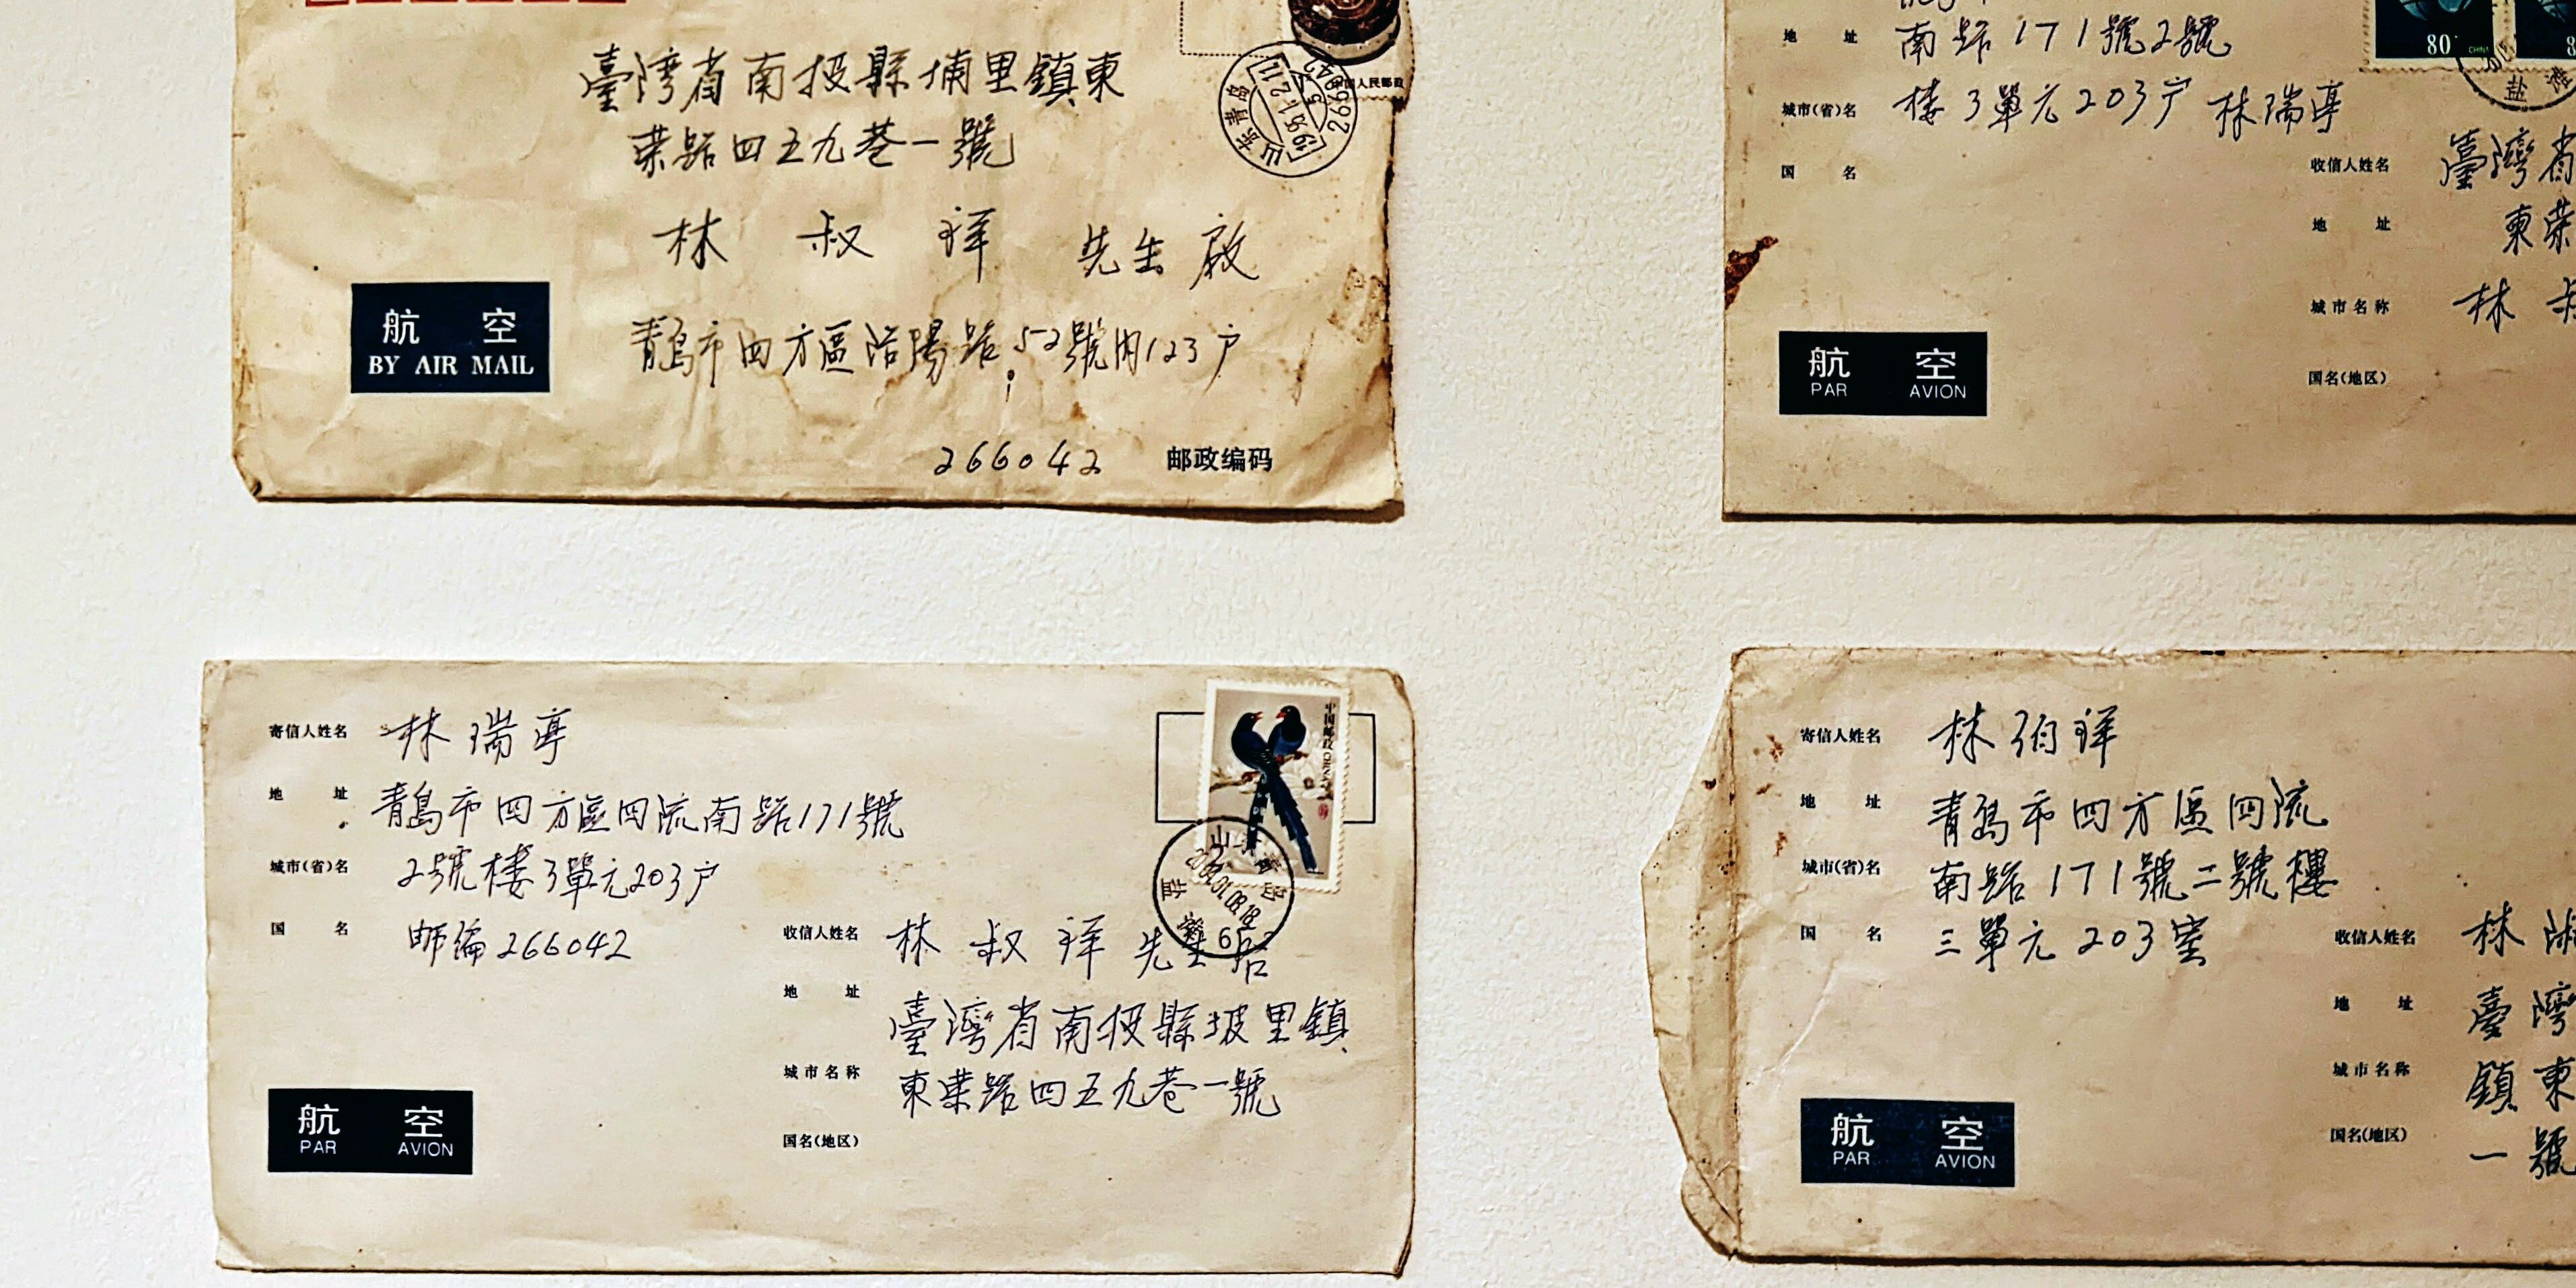 臺灣省南投縣埔里鎮東
榮路四五九巷一號
林叔祥先生啟
航空
BY AIR MAIL
青島市四方區洛陽路52號内123户
266042 邮政编码
山东青岛
266042
国人民邮政
地址 南路171號2號
城市(省)名 楼3單元203户 林瑞亭
国名
收信人姓名 臺灣省
地址 東榮
城市名称 林
国名(地区)
航空
PAR AVION
80
CHINA
寄信人姓名 林瑞亭
地址 青島市四方區四流南路171號
城市(省)名 2號楼3單元203户
国名 邮编266042
中国邮政 CHINA
收信人姓名 林叔祥先生
地址 臺灣省南投縣坡里鎮
城市名称 東榮路四五九巷一號
国名(地区)
航空
PAR AVION
寄信人姓名 林伯祥
地址 青島市四方區四流
城市(省)名 南路171號二號樓
国名 三單元203室
收信人姓名 林
地址 臺灣
城市名称 鎮東
国名(地区) 一號
航空
PAR AVION